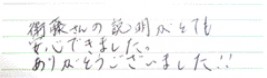 衛藤さんの説明がとても
安心できました。
ありがとうございました!!